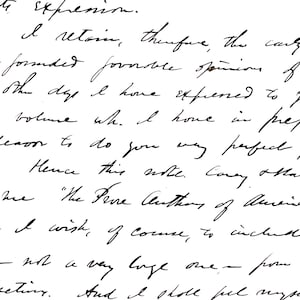 expression.
I retain, therefore, the early
formed favorable opinions of
other dys I have expressed to y
volume wh. I have in prep
reason to do you very perfect
Hence this note. Carey & Ha
me "The Prose Authors of America
I wish, of course, to include
— not a very large one — from
And I shall feel mys